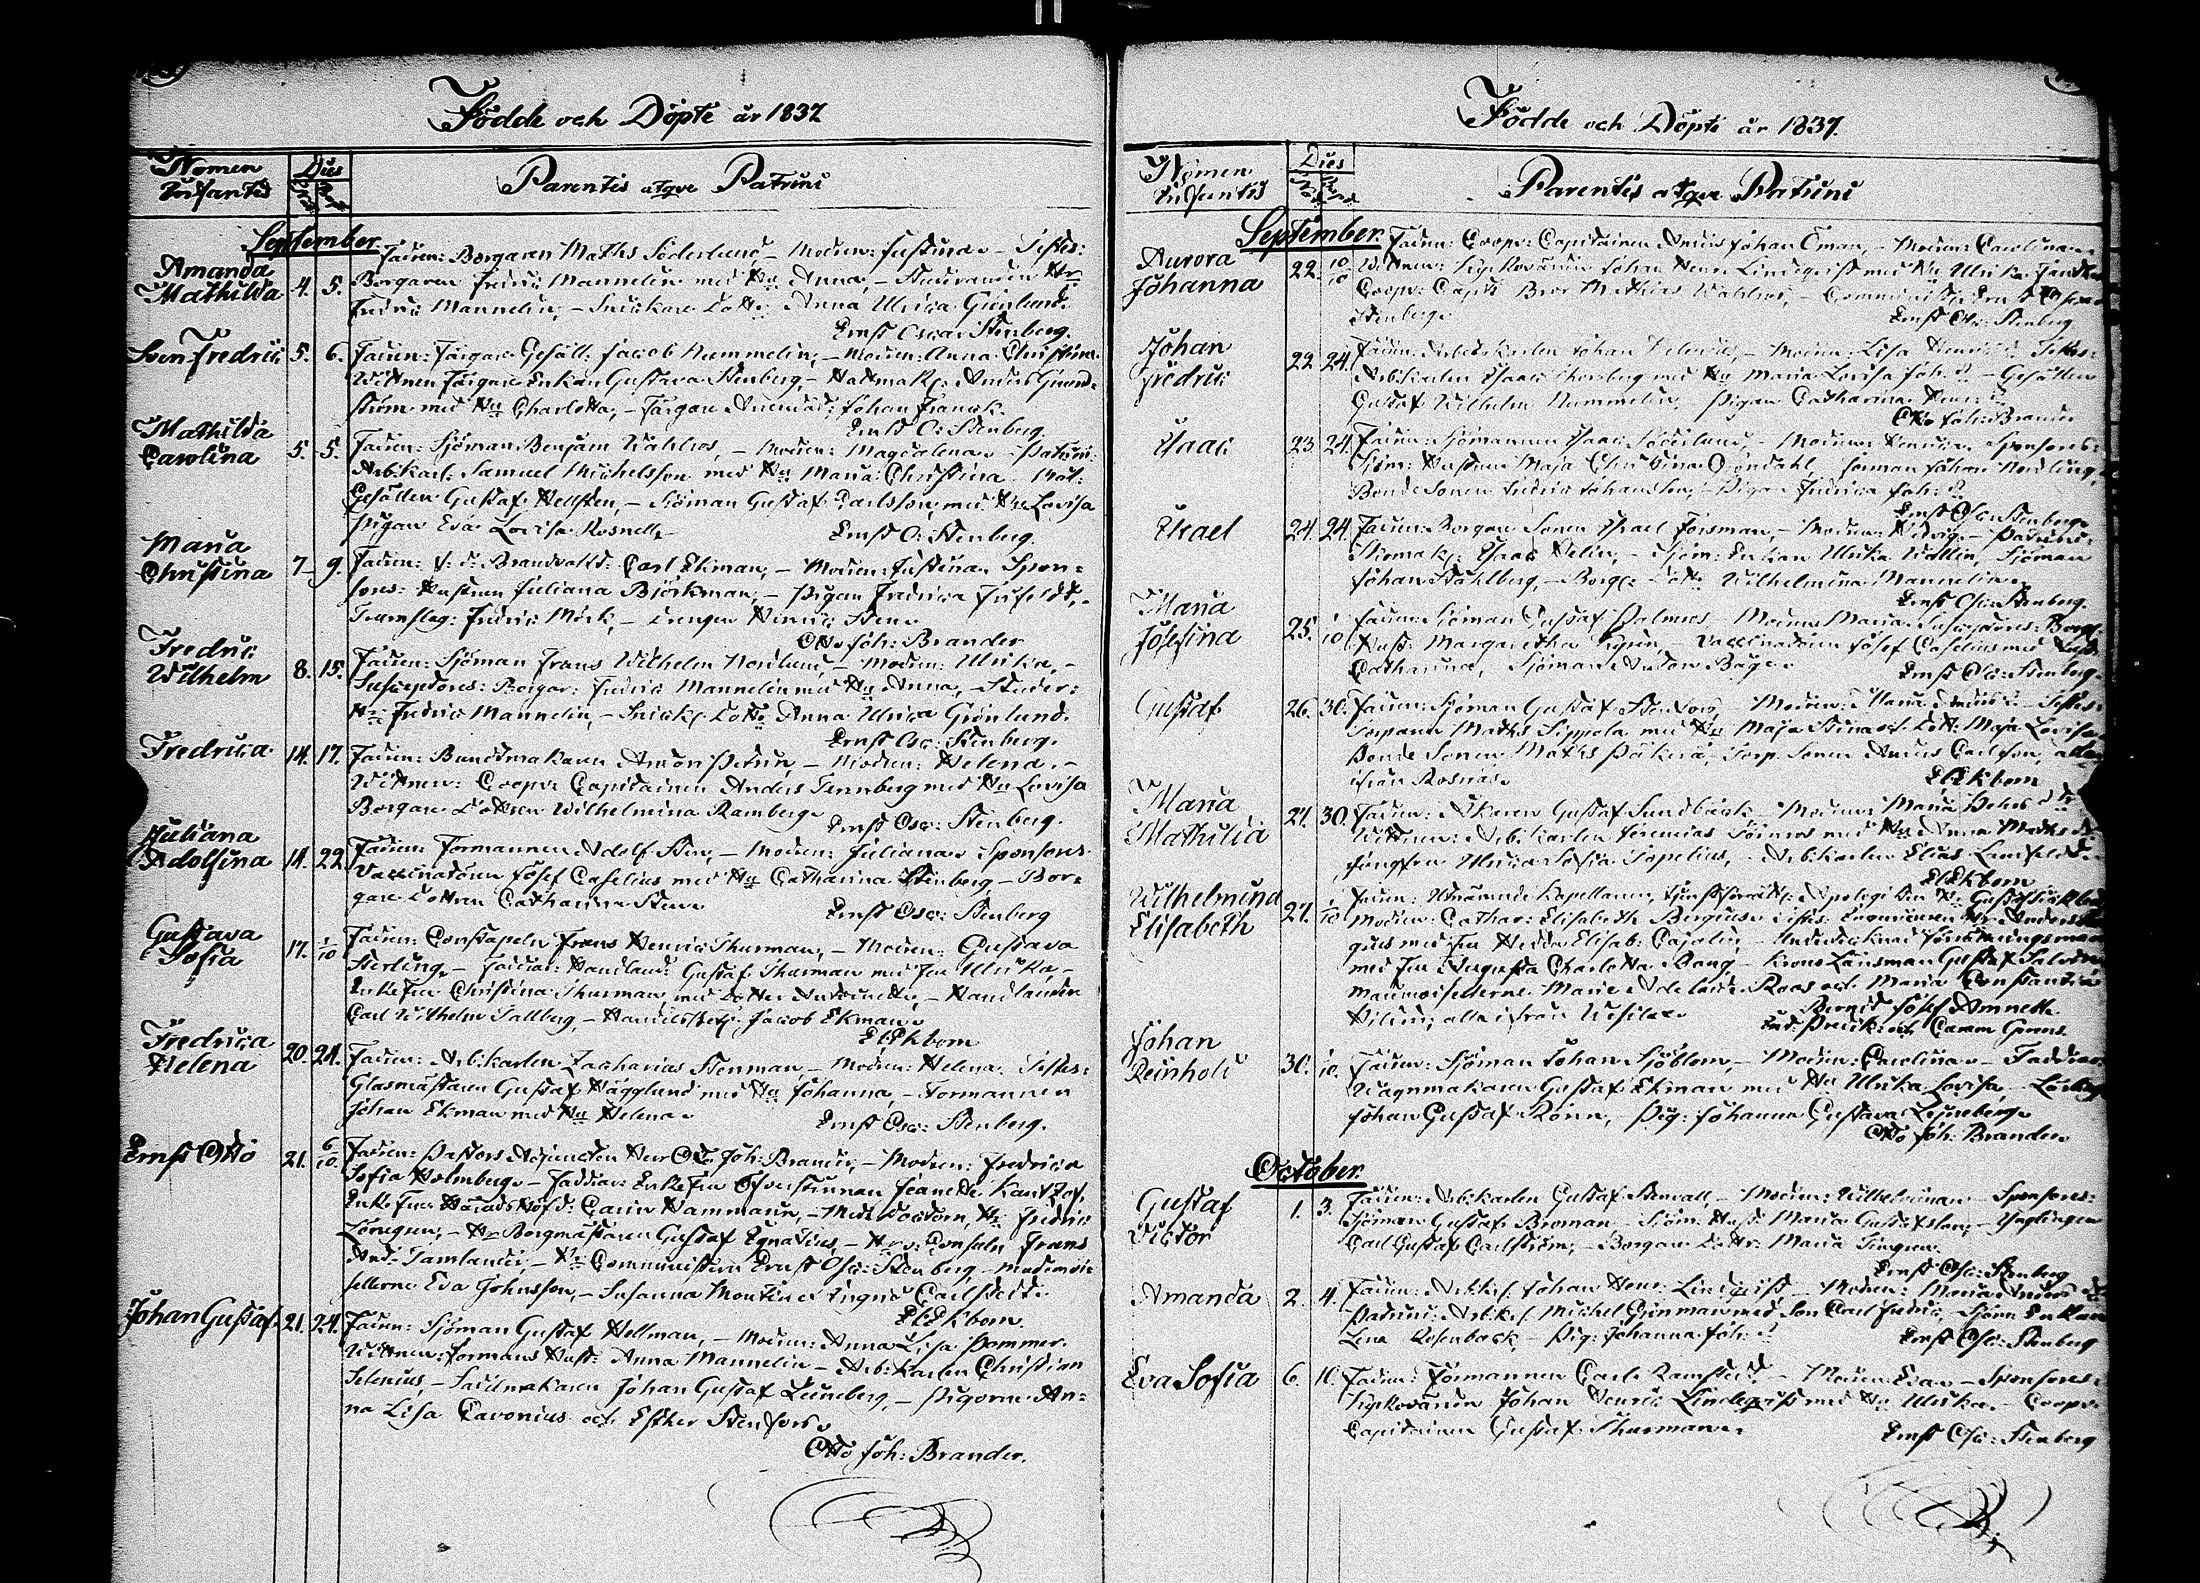 Födde och Döpte år 1837
Nomen Infantis
Dies
Parentis atqve Patrini
September.
Amanda Mathilda 4. 5. Fadren: Borgaren Maths Söderlund, – Modren: Justina – Testes:
Borgaren Fredric Mannelin med Hu Anna, – Studeranden Hr
Fredric Mannelin, – Snickare Dottr Anna Ulrica Grönlund.
Ernst Oscar Stenberg.
Sven Fredric 5. 6. Fadren: Färgare Gesäll. Jacob Nummelin, – Modren: Anna Christina
Wittnen Färgare Enkan Gustava Stenberg, – Hattmak: Anders Grond-
ström med Hu Charlotta, – Färgare Johan Franck.
Ernst O: Stenberg.
Mathilda Carolina 5. 5. Fadren: Sjöman Benjam Wahlros, – Modren: Magdalena – Patrini:
Arb:karl. Samuel Michelsson med Hu Maria Christina
Gesällen Gustaf Hellsten, – Sjöman Gustaf Carlsson, med Hu Lovisa
Pigan Eva Lovisa Rosnell –
Ernst O: Stenberg.
Maria Christina 7. 9. Fadren: v: d: Brandvakt: Carl Ekman, – Modren: Justina Spon-
sores: Hustrun Juliana Björkman, – Pigan Fredrica
Fredric Mörk, – Drengen Henric Sten
Otto Joh: Brander
Fredric Wilhelm 8. 15. Fadren: Sjöman Frans Wilhelm Nordlund, – Modren: Ulrika, –
Susceptores: Borgar: Fredric Mannelin med Hu Anna, – Studer:
Hr Fredric Mannelin, – Snick: Dottr Anna Ulrica Grönlund.
Ernst Osc: Stenberg.
Fredrica 14. 17. Fadren: Buntmakaren – Modren: Helena. –
Wittnen: Coopv: Capitainen Anders Tennberg med Hu Lovisa
Borgare Dottren Wilhelmina Ramberg.
Ernst Osc: Stenberg.
Juliana Adolfina 14. 22. Fadren: Formannen Adolf Sten, – Modren: Juliana Sponsores
Vaccinatören Josef Caselius med Hu Catharina Stenberg – Bor-
gare Dottren Catharina Sten
Ernst Osc: Stenberg
Gustava Sofia 17. 1/10 Fadren: Constapeln Frans Henric Thurman, – Modren: Gustava
Sterling. – Faddrar: Handland: Gustaf Thurman med Fru Ulrika, –
EnkeFru Christina Thurman med Dotter Antoinette, – Handlanden
Carl Wilhelm Sallberg, – Handelsbetj: Jacob Ekman.
El Ekbom
Fredrica Helena 20. 24. Fadren: Arb:karlen Zacharias Stenman – Modren: Helena. Testes:
Glasmästaren Gustaf Hägglund med Hu Johanna, – Formannen
Johan Ekman med Hu Helena.
Ernst Osc: Stenberg.
Ernst Otto 21. 6/10 Fadren: Pastors Adjuncten Herr Otto Joh: Brander, – Modren: Fredrica
Sofia Holmberg. – Faddrar: EnkeFru Öfverstinnan Jeanette Kantzof,
EnkeFru Häradshöfd: Carin Hammarin, – Med: Doctorn, Hr Fredric
Lönegren, – Hr Borgmästaren Gustaf Egnatius, – Hr v: Consuln Frans
And: Tamlander, – Hr Comministern Ernst Osc: Stenberg – Mademoi-
sellerne Eva Johnsson, – Susanna Montin o: Ingrid Carlstedt.
El Ekbom.
Johan Gustaf 21. 24. Fadren: Sjöman Gustaf Hellman, – Modren: Anna Lisa Pommer.
Wittnen: Formans Hust: Anna Mannelin – Arb:karlen Christian
Selenius, – Sadelmakaren Johan Gustaf Leineberg, – Pigorne An-
na Lisa Cavonius och Esther Stenfors.
Otto Joh: Brander.
Födde och Döpte år 1837.
Nomen Infantis
Dies
Parentis atqve Patrini
September.
Aurora Johanna 22. 10/10 Fadren: Coopv: Capitainen Anders Johan Öman, – Modren: Carolina
Wittnen: Johan Henr: Lindeqvist med Hu Ulrika
Coopv: Capit: Bror Mathias Wahlros, –
Stenberg.
Ernst Osc: Stenberg
Johan Fredric 22. 24. Fadren: Arbetskarlen Johan – Modren: Lisa Testes:
Arb:karlen Isaac med Hu Maria Lovisa Joh: Dr – Gesällen
Gustaf Wilhelm Nummelin, Pigan Catharina Henr: Dr
Otto Joh: Brander
Isaac 23. 24. Fadren: Sjömannen Isaac Söderlund, – Modren: Henrica. Sponsores:
Sjöm: Hustrun Maja Christina Gröndahl, Forman Johan Nordling,
Bonde Sonen Fredric Johansson, – Pigan Fredrica Joh: Dr
Ernst Osc: Stenberg.
Israel 24. 24. Fadren: Borgare Sonen Israel Forsman, – Modren: Hedvig. – Patrini:
Skomak: Isaac Helin, – Sjöm: Enkan Ulrika Wallin, Sjöman
Johan Ståhlberg, – Borg: Dottr Wilhelmina Mannelin.
Ernst Osc: Stenberg.
Maria Josefina 25. 1/10 Fadren: Sjöman Gustaf Palmros, Modren: Maria. Susceptores: Borg:
Hust: Margaretha Vaccinatören Josef Caselius med Hust:
Catharina, Sjöman Anton Båge.
Ernst Osc: Stenberg.
Gustaf 26. 30. Fadren: Sjöman Gustaf Stenfors, Modren: Maria Anders Dr – Testes:
Torparen Maths Sippola med Hu Maja Stina o: Dott: Maja Lovisa
Bonde Sonen Maths Torp: Sonen Anders Carlsson, alla
ifrån Rosnäs.
El Ekbom
Maria Mathilda 21. 30. Fadren: Åkaren Gustaf Sundbäck – Modren: Maria
Wittnen: Arb:karlen Jeremias med Hu Anna Maths Dr
Jungfru Ulrica Sofia Topelius, – Arb:karlen Elias
El Ekbom
Wilhelmina Elisabeth 27. 1/10 Fadren: Utnämnde Kapellanen,
Modren: Cathar: Elisabeth Bergius. Testes:
med Fru Hedda Elisab: Cajolin, – Undertecknad
med Fru Augusta Charlotta Bang, – Krono Länsman Gustaf
Mademoisellerne Marie Adelaide Roos och Maria Constantia
alla ifrån
Josef
Johan Reinhold 30. 1/10. Fadren: Sjöman Johan Sjöblom, – Modren: Carolina – Faddrar
Wagnmakaren Gustaf Ekman med Hu Ulrika Lovisa,
Johan Gustaf Rönn, – Pig: Johanna Gustava Leineberg.
Otto Joh: Brander.
October.
Gustaf Victor 1. 3. Fadren: Arb:karlen Gustaf Stenvall, – Modren: Wilhelmina – Sponsores:
Sjöman Gustaf Broman – Sjöm: Hust: Maria Gustafsson, – Ynglingen
Carl Gustaf Carlström, – Borgare Dottr: Maria
Ernst Osc: Stenberg
Amanda 2. 4. Fadren: Arb:k: Johan Henr: Lindqvist – Modren: Maria Anders Dr
Patrini: Arb:k: Michel Grönman med Son Carl Fredric, – Sjöm: Enkan
Lena Rosenback, – Pig: Johanna Joh: Dr
Ernst Osc: Stenberg
Eva Sofia 6. 10. Fadren: Formannen Carl Ramstedt, – Modren Eva – Sponsores:
Johan Henric Lindeqvist med Hu Ulrika. – Coopv:
Capitainen Gustaf Thurman.
Ernst Osc: Stenberg